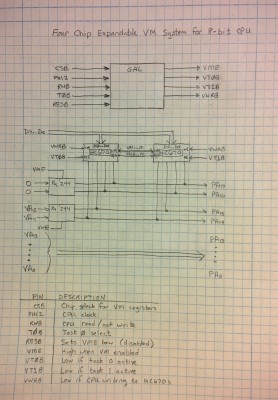 Four Chip Expandable VM System for 8-bit CPU
GAL
CSB
PHI2
RWB
T0B
RESB
VME
VT0B
VT1B
VWRB
VWRB
VT0B
VWRB
VT1B
VME
0
0
244
PA15
PA14
VA15
VA14
244
VME
VA13
VA0
PA13
PA0
PIN DESCRIPTION
CSB Chip select for VM registers
PHI2 CPU clock
RWB CPU read/not write
T0B Task 0 select
RESB Sets VME low (disabled)
VME High when VM enabled
VT0B Low if task 0 active
VT1B Low if task 1 active
VWRB Low if CPU writing to HC670s